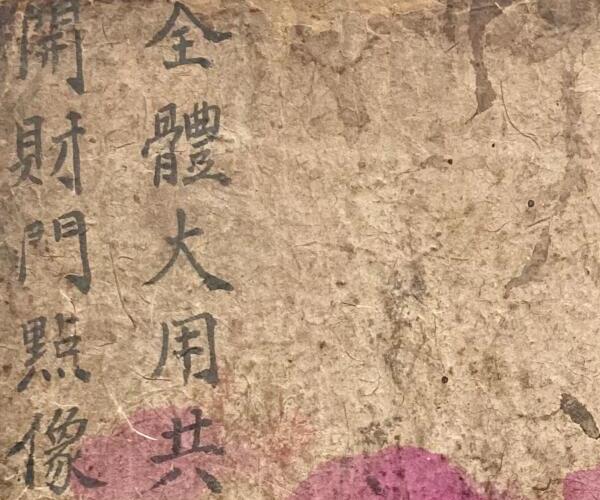 全體大用共
開財門點像